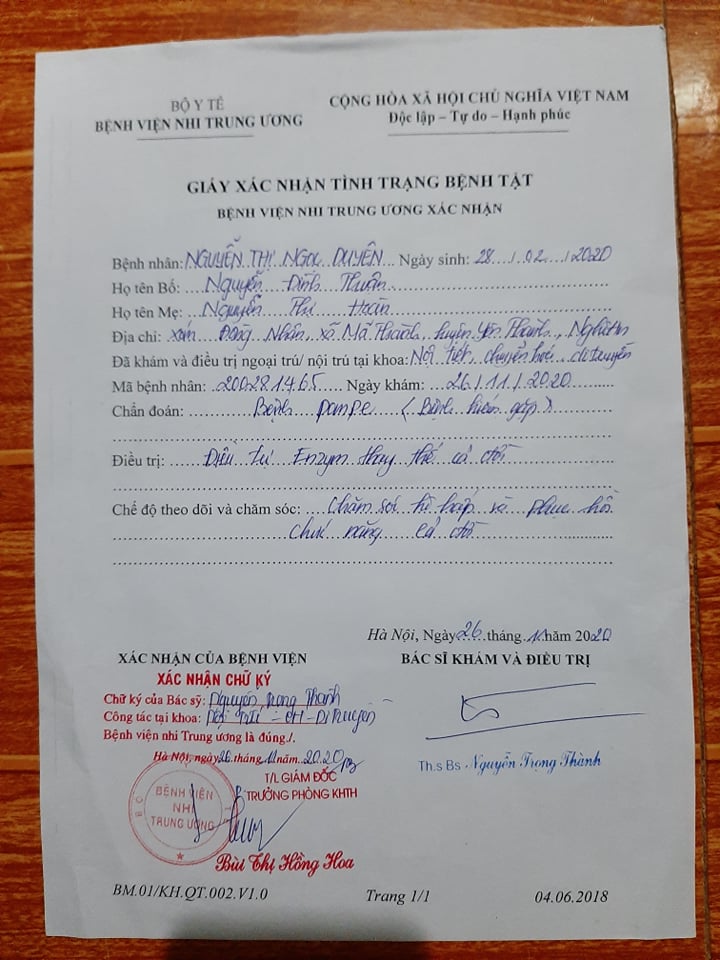 BỘ Y TẾ
BỆNH VIỆN NHI TRUNG ƯƠNG
CỘNG HÒA XÃ HỘI CHỦ NGHĨA VIỆT NAM
Độc lập – Tự do – Hạnh phúc
GIẤY XÁC NHẬN TÌNH TRẠNG BỆNH TẬT
BỆNH VIỆN NHI TRUNG ƯƠNG XÁC NHẬN
Bệnh nhân: NGUYỄN THỊ NGỌC DUYÊN Ngày sinh: 28 / 02 / 2020
Họ tên Bố: Nguyễn Đình Thuận
Họ tên Mẹ: Nguyễn Thị Hoàn
Địa chỉ: xóm Đồng Nhân, xã Mã Thành, huyện Yên Thành, Nghệ An
Đã khám và điều trị ngoại trú/ nội trú tại khoa: Nội tiết, chuyển hoá, di truyền
Mã bệnh nhân: 200281465 Ngày khám: 26/11/2020
Chẩn đoán: Bệnh pompe (Bệnh hiếm gặp)
Điều trị: Điều trị Enzym thay thế cả đời
Chế độ theo dõi và chăm sóc: Chăm sóc hô hấp và phục hồi
chức năng cả đời
Hà Nội, Ngày 26 tháng 11 năm 2020
XÁC NHẬN CỦA BỆNH VIỆN
BÁC SĨ KHÁM VÀ ĐIỀU TRỊ
XÁC NHẬN CHỮ KÝ
Chữ ký của Bác sỹ: Nguyễn Trọng Thành
Công tác tại khoa: Nội tiết – CH – Di truyền
Bệnh viện nhi Trung ương là đúng./.
Hà Nội, ngày 26 tháng 11 năm 2020
T/L GIÁM ĐỐC
TRƯỞNG PHÒNG KHTH
Th.s Bs Nguyễn Trọng Thành
BỆNH VIỆN
NHI
TRUNG ƯƠNG
Bùi Thị Hồng Hoa
BM.01/KH.QT.002.V1.0
Trang 1/1
04.06.2018